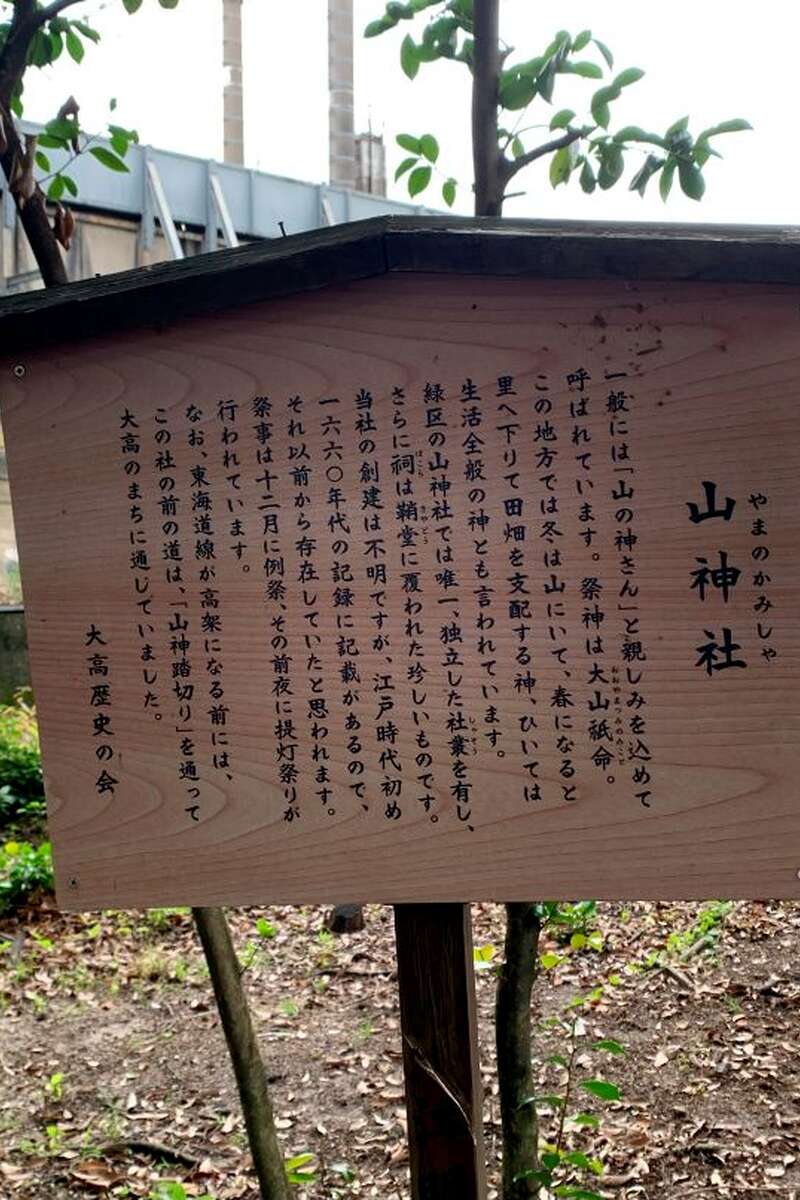 やまのかみしゃ
山神社
一般には「山の神さん」と親しみを込めて
呼ばれています。祭神は大山祇命。
おおやまつみのみこと
この地方では冬は山にいて、春になると
里へ下りて田畑を支配する神、ひいては
生活全般の神とも言われています。
緑区の山神社では唯一、独立した社叢を有し、
しゃそう
さらに祠は鞘堂に覆われた珍しいものです。
ほこら
さやどう
当社の創建は不明ですが、江戸時代初め
一六六〇年代の記録に記載があるので、
それ以前から存在していたと思われます。
祭事は十二月に例祭、その前夜に提灯祭りが
行われています。
なお、東海道線が高架になる前には、
この社の前の道は、「山神踏切り」を通って
大高のまちに通じていました。
大高歴史の会